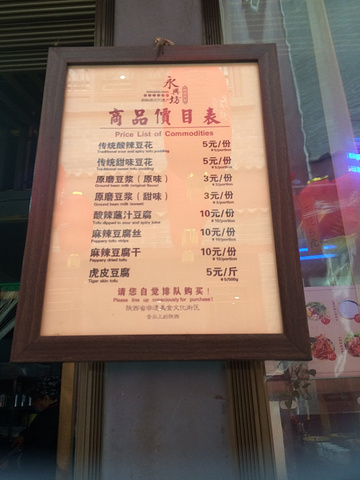 永興坊
商品價目表
Price List of Commodities
传统酸辣豆花 5元/份
Traditional sour and spicy tofu pudding ¥5/portion
传统甜味豆花 5元/份
Traditional sweet tofu pudding ¥5/portion
原磨豆浆（原味） 3元/份
Ground bean milk (original flavor) ¥3/portion
原磨豆浆（甜味） 3元/份
Ground bean milk (sweet) ¥3/portion
酸辣蘸汁豆腐 10元/份
Tofu dipped in sour and spicy juice ¥10/portion
麻辣豆腐丝 10元/份
Peppery dried tofu ¥10/portion
麻辣豆腐干 10元/份
Peppery dried tofu ¥10/portion
虎皮豆腐 5元/斤
Tiger skin tofu ¥5/500g
请您自觉排队购买！
Please line up consciously for purchase!
陕西省非遗美食文化街区
舌尖上的陕西